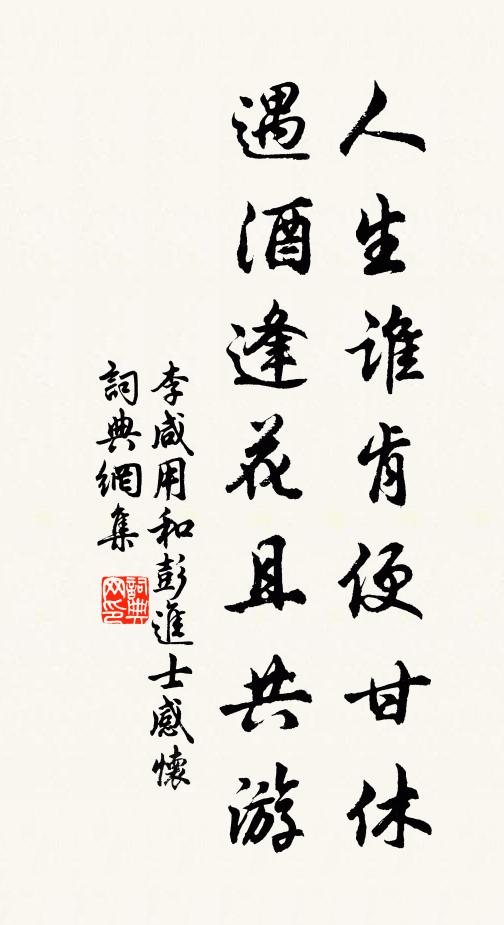 人生誰肯便甘休
遇酒逢花且共游
李咸用和彭進士感懷
詞典網集
詞典網印